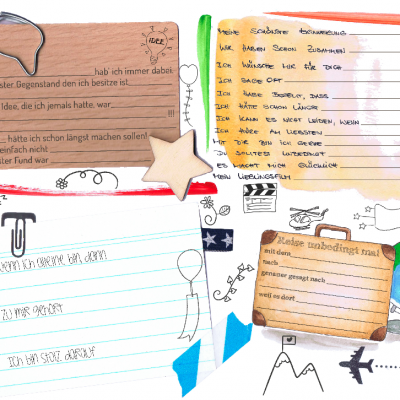 IDEE
hab' ich immer dabei.
ster Gegenstand den ich besitze ist
Idee, die ich jemals hatte, war
!!!
hätte ich schon längst machen sollen!
einfach nicht
ster Fund war
MEINE SCHÖNSTE ERINNERUNG
WIR HABEN SCHON ZUSAMMEN
ICH WÜNSCHE MIR FÜR DICH
ICH SAGE OFT
ICH HABE BEREUT, DASS
ICH HÄTTE SCHON LÄNGST
ICH KANN ES NICHT LEIDEN, WENN
ICH HÖRE AM LIEBSTEN
MIT DIR BIN ICH GERNE
DU SOLLTEST UNBEDINGT
ES MACHT MICH GLÜCKLICH
MEIN LIEBLINGSFILM
wenn ich alleine bin, dann
zu mir gehört
Ich bin stolz darauf
Reise unbedingt mal
mit dem
nach
genauer gesagt nach
weil es dort